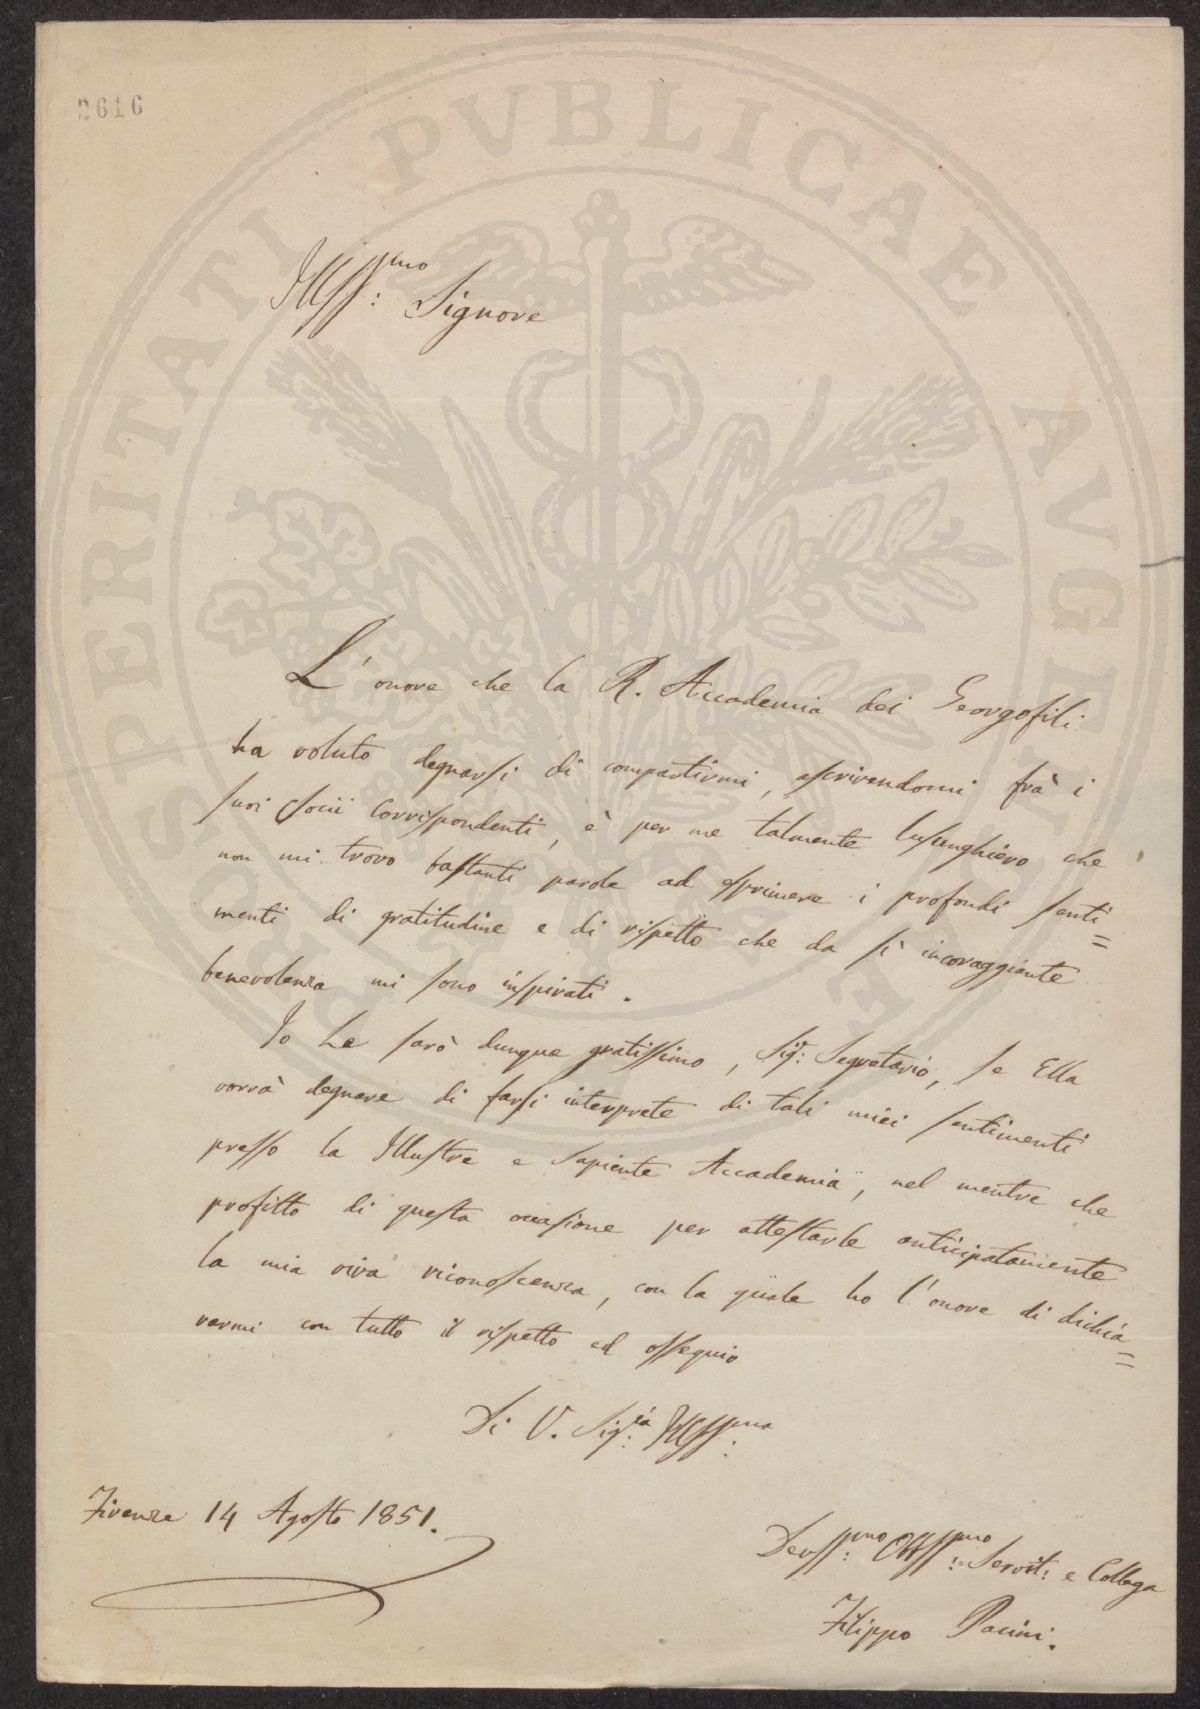 2616
PROSPERITATI PVBLICAE AVGENDAE
Illss:mo Signore
L'onore che la R. Accademia dei Georgofili
ha voluto degnarsi di compartirmi, ascrivendomi frà i
suoi Socii Corrispondenti, è per me talmente lusinghiero che
non mi trovo bastanti parole ad esprimere i profondi senti=
menti di gratitudine e di rispetto che da sì incoraggiante
benevolenza mi sono inspirati.
Io Le sarò dunque gratissimo, Sigr: Segretario, se Ella
vorrà degnare di farsi interprete di tali miei sentimenti
presso la Illustre e Sapiente Accademia, nel mentre che
profitto di questa occasione per attestarle anticipatamente
la mia viva riconoscenza, con la quale ho l'onore di dichia=
rarmi con tutto il rispetto ed ossequio
Di V. Sig:ia Illss:ma
Firenze 14 Agosto 1851.
Devss:mo Obbss:mo Servit: e Collega
Filippo Pacini.